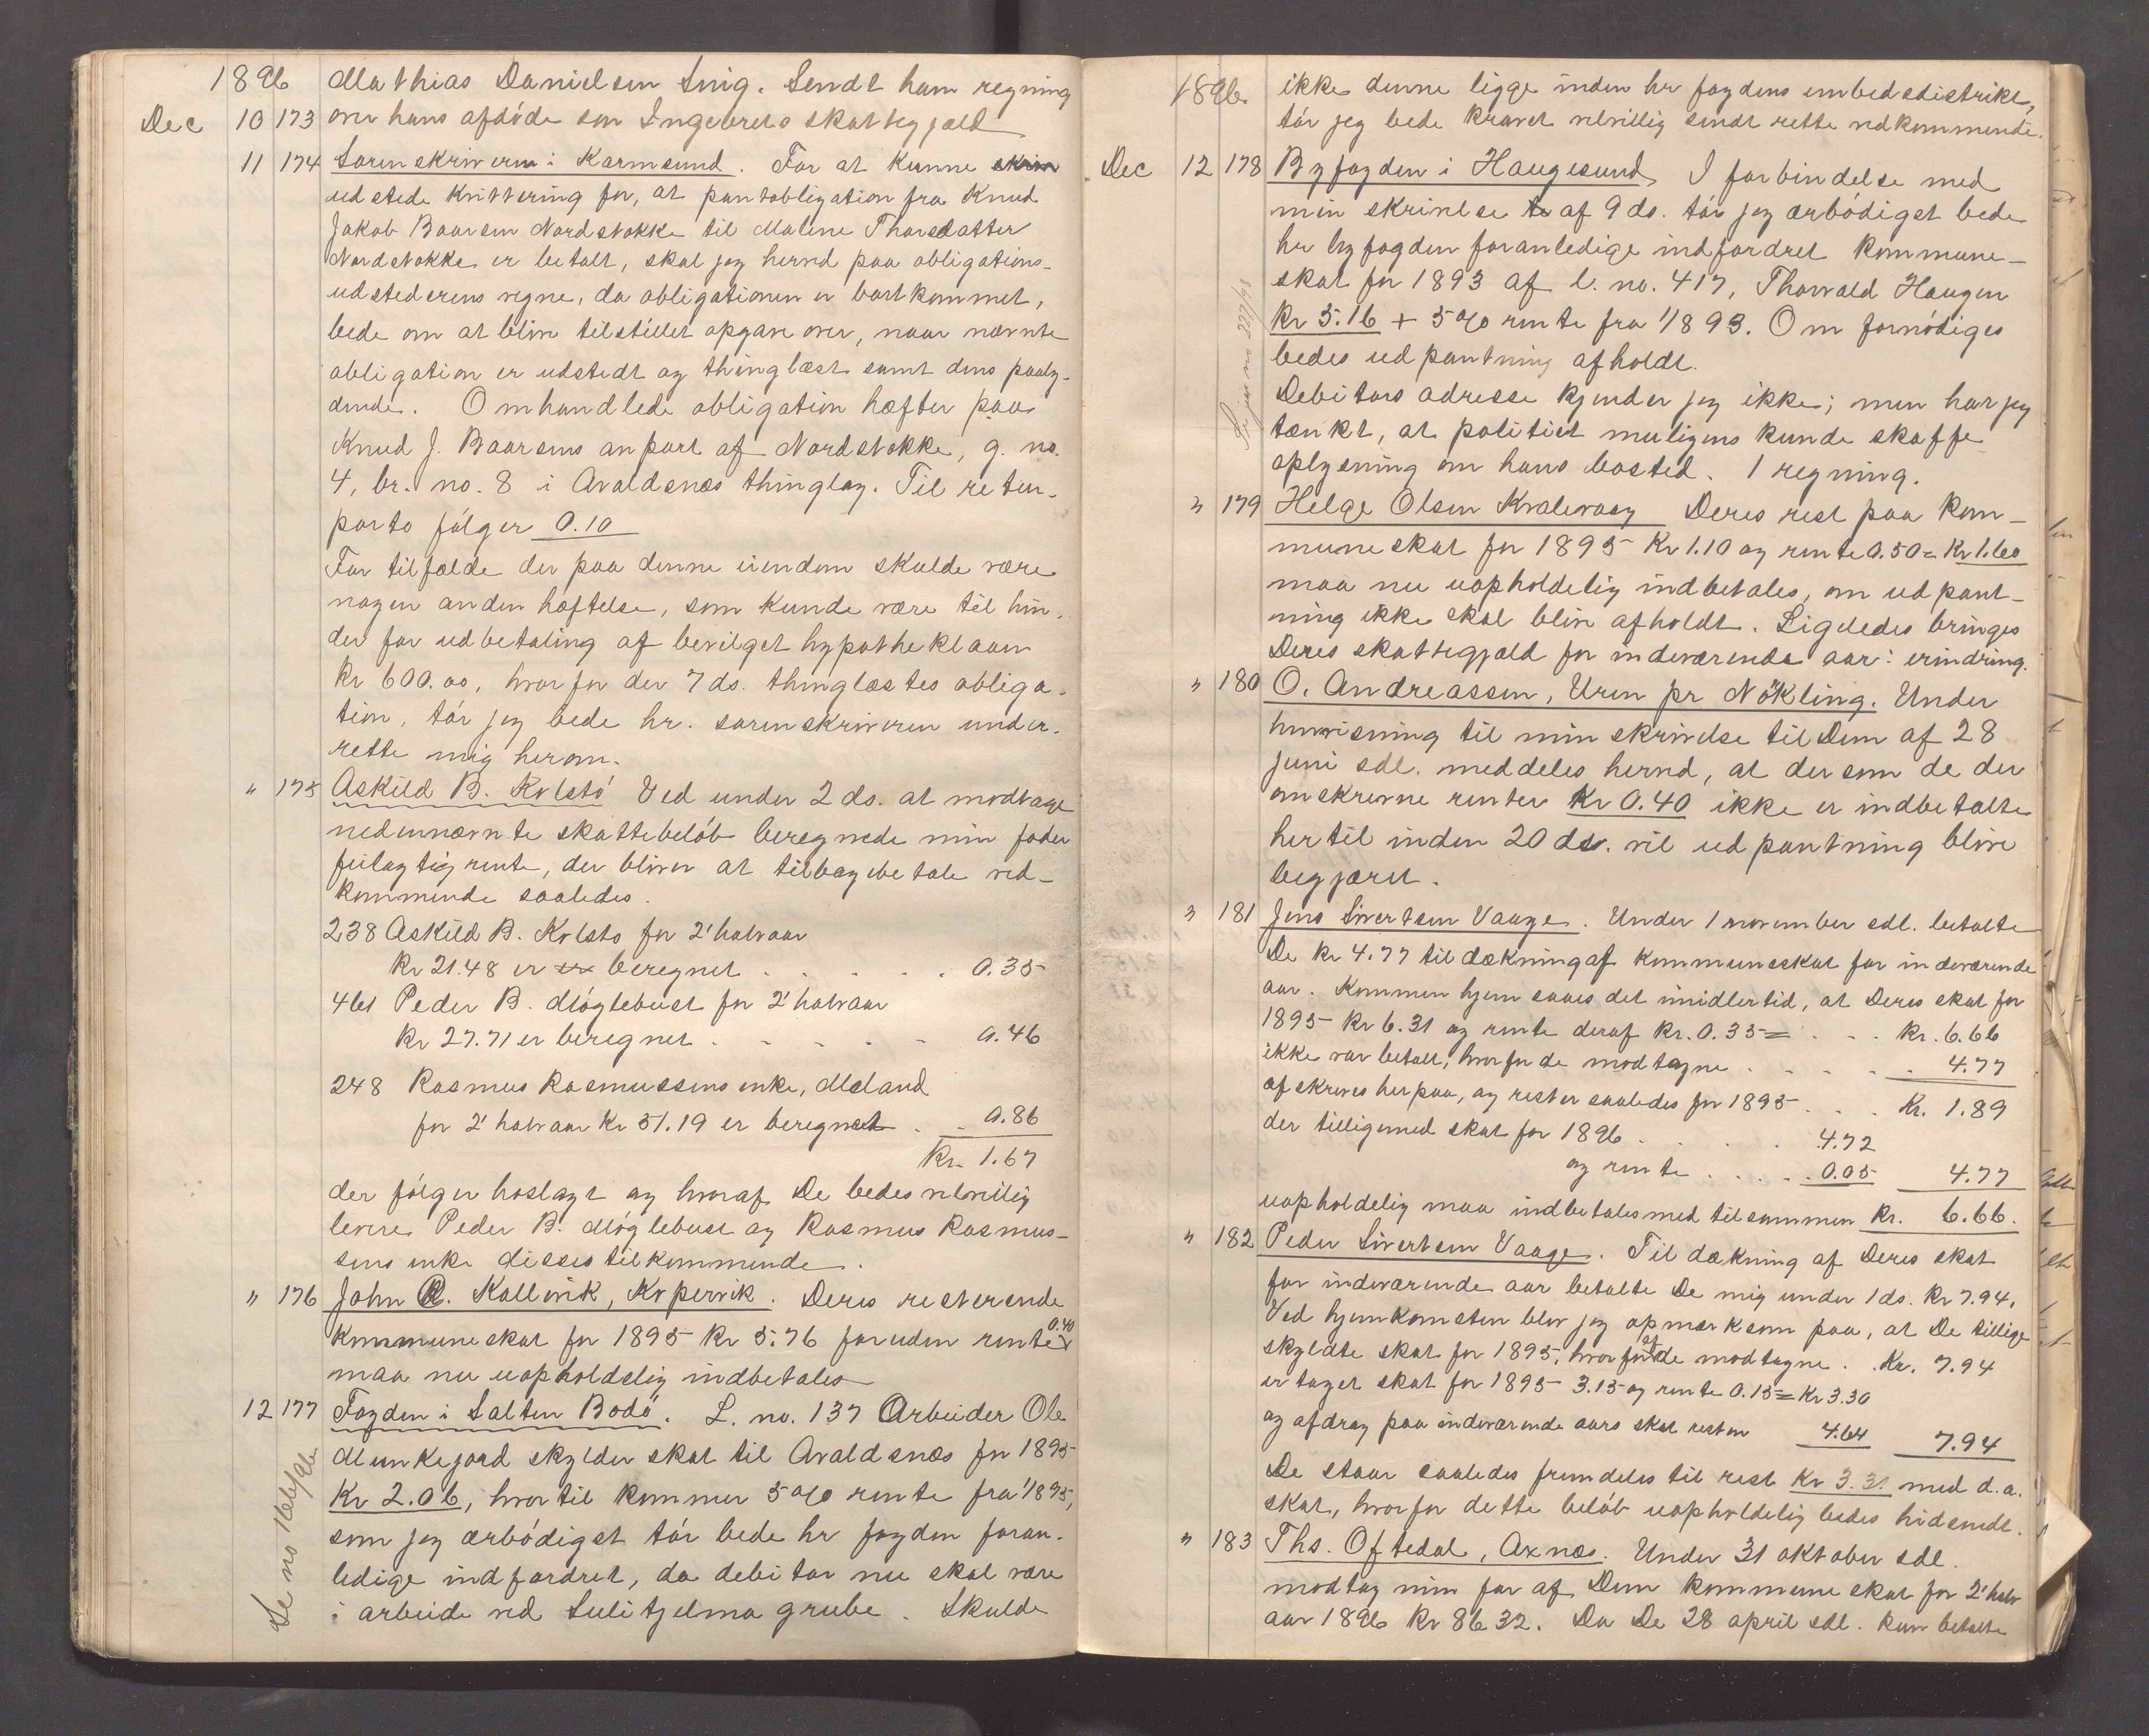 1896 Mathias Danielsen Snig. Sendt ham regning
Dec 10 173 over hans afdöde søn Ingebrets skattegjæld
11 174 Sorenskriveren i Karmsund. For at kunne skrive
udstede kvittering for, at pantobligation fra Knud
Jakob Baarsen Nordstokke til Malene Thorsdatter
Nordstokke er betalt, skal jeg herved paa obligations-
udstederens vegne, da obligationen er bortkommet,
bede om at blive tilstillet opgave over, naar nævnte
obligation er udstedt og thinglæst samt dens paaly-
dende. Omhandlede obligation hæfter paa
Knud J. Baarsens anpart af Nordstokke, g. no.
4, br. no. 8 i Avaldsnæs thinglag. Til retur-
porto fölger 0.10
For tilfælde der paa denne eiendom skulde være
nogen anden hæftelse, som kunde være til hin-
der for udbetaling af bevilget hypotheklaan
Kr 600.00, hvorfor der 7 ds. thinglæstes obliga-
tion, tör jeg bede hr. sorenskriveren under-
rette mig herom.
" 175 Askild B. Kolstö Ved under 2 ds. at modtage
nedennævnte skattebelöb beregnede min fader
feilagtig rente, der bliver at tilbagebetale ved-
kommende saaledes.
238 Askild B. Kolstö for 2' halvaar
Kr 21.48 er er beregnet . . . . . 0.35
461 Peder B. Möglebust for 2' halvaar
Kr 27.71 er beregnet . . . . . 0.46
248 Rasmus Rasmussens enke, Mæland
for 2' halvaar Kr 51.19 er beregnet . . 0.86
Kr. 1.67
der fölger hoslagt og hvoraf De bedes velvillig
levere Peder B. Möglebust og Rasmus Rasmus-
sens enke disses tilkommende.
" 176 John R. Kallevik, Kopervik. Deres resterende
kommuneskat for 1895 Kr 5.76 foruden rente 0.40
maa nu uopholdelig indbetales
12 177 Fogden i Salten Bodö. L. no. 137 Arbeider Ole
Munkejord skylder skat til Avaldsnæs for 1895
Kr 2.06, hvortil kommer 5% rente fra 1/8 95,
som jeg ærbödigst tör bede hr fogden foran-
ledige indfordret, da debitor nu skal være
i arbeide ved Sulitjelma grube. Skulde
Se no 166/96
1896 ikke denne ligge inden hr fogdens embedsdistrikt,
tör jeg bede kravet velvillig sendt rette vedkommende.
Dec 12 178 Byfogden i Haugesund, I forbindelse med
min skrivelse te af 9 ds. tör jeg ærbödigst bede
hr byfogden foranledige indfordret kommune-
skat for 1893 af l. no. 417, Thorvald Haugen
Kr 5.16 + 5% rente fra 1/8 93. Om fornödiges
bedes udpantning afholdt.
Debitors adresse kjender jeg ikke; men har jeg
tænkt, at politiet muligens kunde skaffe
oplysning om hans bosted. 1 regning.
" 179 Helge Olsen Kvalevaag Deres rest paa kom-
muneskat for 1895 Kr 1.10 og rente 0.50 = Kr 1.60
maa nu uopholdelig indbetales, om udpant-
ning ikke skal blive afholdt. Ligeledes bringes
Deres skattegjæld for indeværende aar i erindring.
" 180 O. Andreassen, Uren pr Nökling. Under
henvisning til min skrivelse til Dem af 28
juni sdl. meddeles herved, at dersom de der
omskrevne renter Kr 0.40 ikke er indbetalte
hertil inden 20 ds. vil udpantning blive
begjæret.
" 181 Jens Sivertsen Vaage. Under 1 november sdl. betalte
De Kr 4.77 til dækning af kommuneskat for indeværende
aar. Kommen hjem saaes det imidlertid, at Deres skat for
1895 Kr 6.31 og rente deraf Kr. 0.35 = . . . Kr. 6.66
ikke var betalt, hvorfor de modtagne . . . . . 4.77
afskrives herpaa, og rester saaledes for 1895 . . . Kr. 1.89
der tilligemed skat for 1896 . . . . 4.72
og rente . . . . 0.05 4.77
uopholdelig maa indbetales med tilsammen Kr. 6.66.
" 182 Peder Sivertsen Vaage. Til dækning af Deres skat
for indeværende aar betalte De mig under 1 ds. Kr 7.94.
Ved hjemkomsten blev jeg opmærksom paa, at De tillige
skyldte skat for 1895, hvorfor af de modtagne . Kr. 7.94
er taget skat for 1895 3.15 og rente 0.15 = Kr 3.30
og afdrag paa indeværende aars skat resten 4.64 7.94
De staar saaledes fremdeles til rest Kr 3.31 med d. a.
skat, hvorfor dette belöb uopholdelig bedes hidsendt.
" 183 Ths. Oftedal, Axnæs. Under 31 oktober sdl.
modtog min far af Dem kommuneskat for 2' halv
aar 1896 Kr 86.32. Da De 28 april sdl. kun betalte